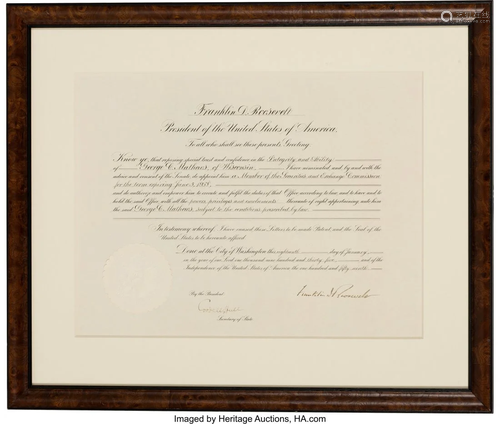 Franklin D. Roosevelt
President of the United States of America.
To all who shall see these presents, Greeting:
Know ye, that reposing special trust and confidence in the Integrity and Ability
of George C. Mathews, of Wisconsin, I have nominated, and by and with the
advice and consent of the Senate, do appoint him a Member of the Securities and Exchange Commission
for the term expiring June 5,
and do authorize and empower him to execute and fulfil the duties of that Office according to law, and to have and to
hold the said Office, with all the powers, privileges, and emoluments thereunto of right appertaining unto him
the said George C. Mathews, subject to the conditions prescribed by law.
In testimony whereof, I have caused these Letters to be made Patent, and the Seal of the
United States to be hereunto affixed.
Done at the City of Washington this day of January
in the year of our Lord one thousand nine hundred and thirty and of the
Independence of the United States of America the one hundred and fifty
By the President:
Franklin D Roosevelt
Secretary of State.
Imaged by Heritage Auctions, HA.com